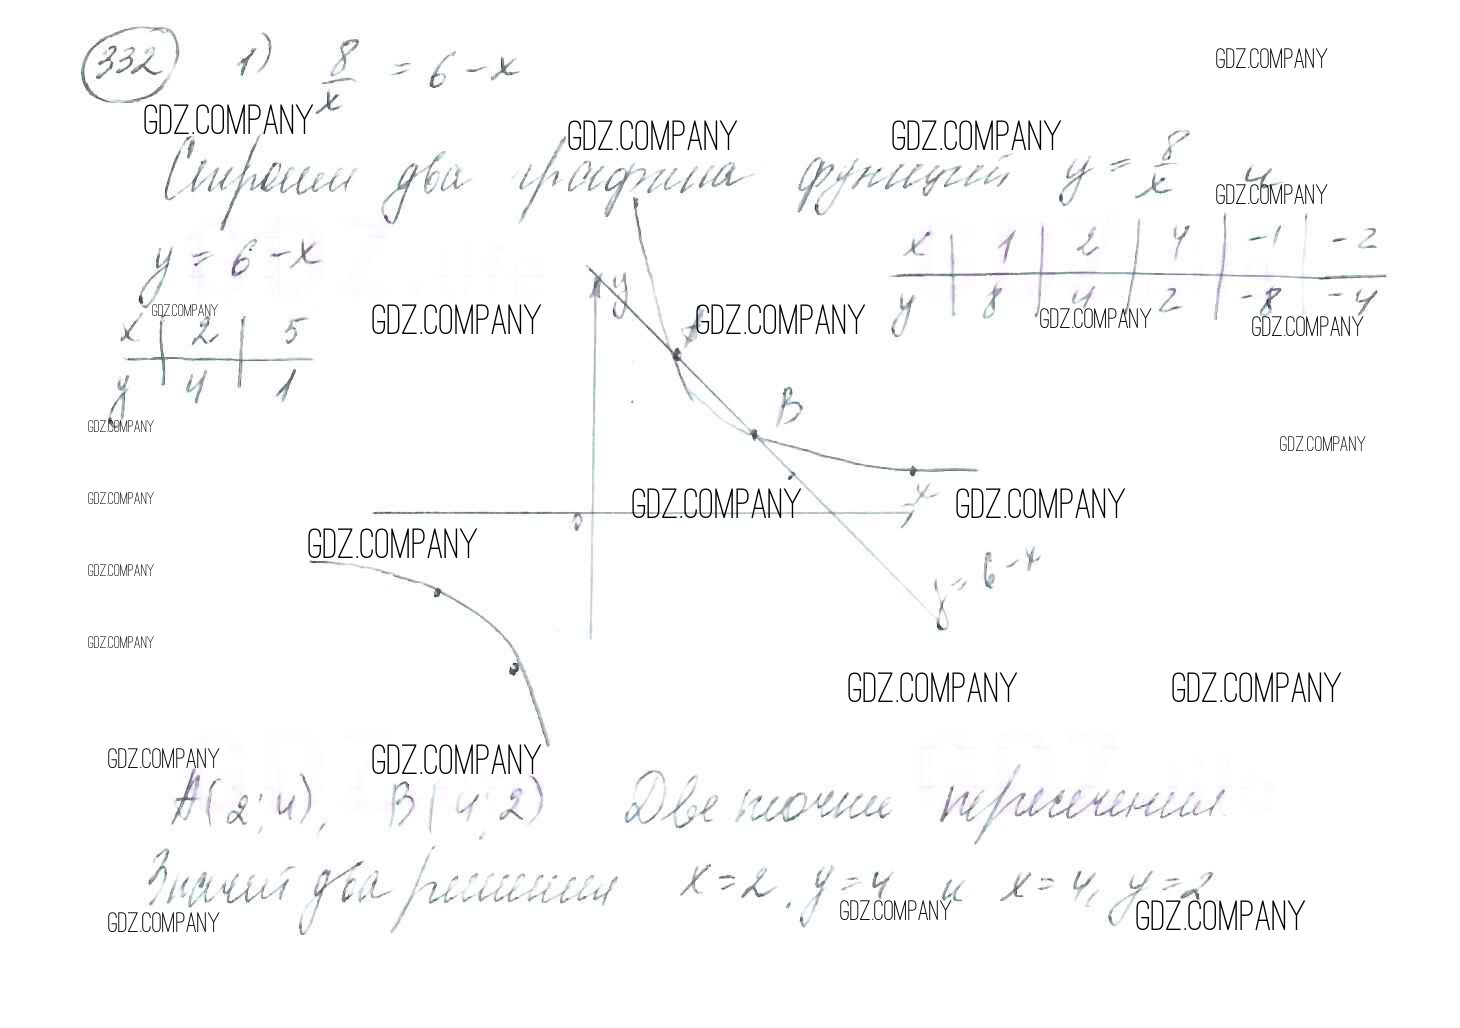 332 1) 8/x = 6 - x
GDZ.COMPANY
GDZ.COMPANY GDZ.COMPANY GDZ.COMPANY
Строим два графика функций y = 8/x и
GDZ.COMPANY
y = 6 - x
x | 1 | 2 | 4 | -1 | -2
y | 8 | 4 | 2 | -8 | -4
GDZ.COMPANY GDZ.COMPANY GDZ.COMPANY GDZ.COMPANY GDZ.COMPANY
x | 2 | 5
y | 4 | 1
y
A
B
GDZ.COMPANY GDZ.COMPANY
GDZ.COMPANY GDZ.COMPANY GDZ.COMPANY
x
0
GDZ.COMPANY
GDZ.COMPANY
y = 6 - x
GDZ.COMPANY
GDZ.COMPANY GDZ.COMPANY
GDZ.COMPANY GDZ.COMPANY
A(2;4), B(4;2) Две точки пересечения
Значит два решения x=2, y=4 и x=4, y=2
GDZ.COMPANY GDZ.COMPANY GDZ.COMPANY